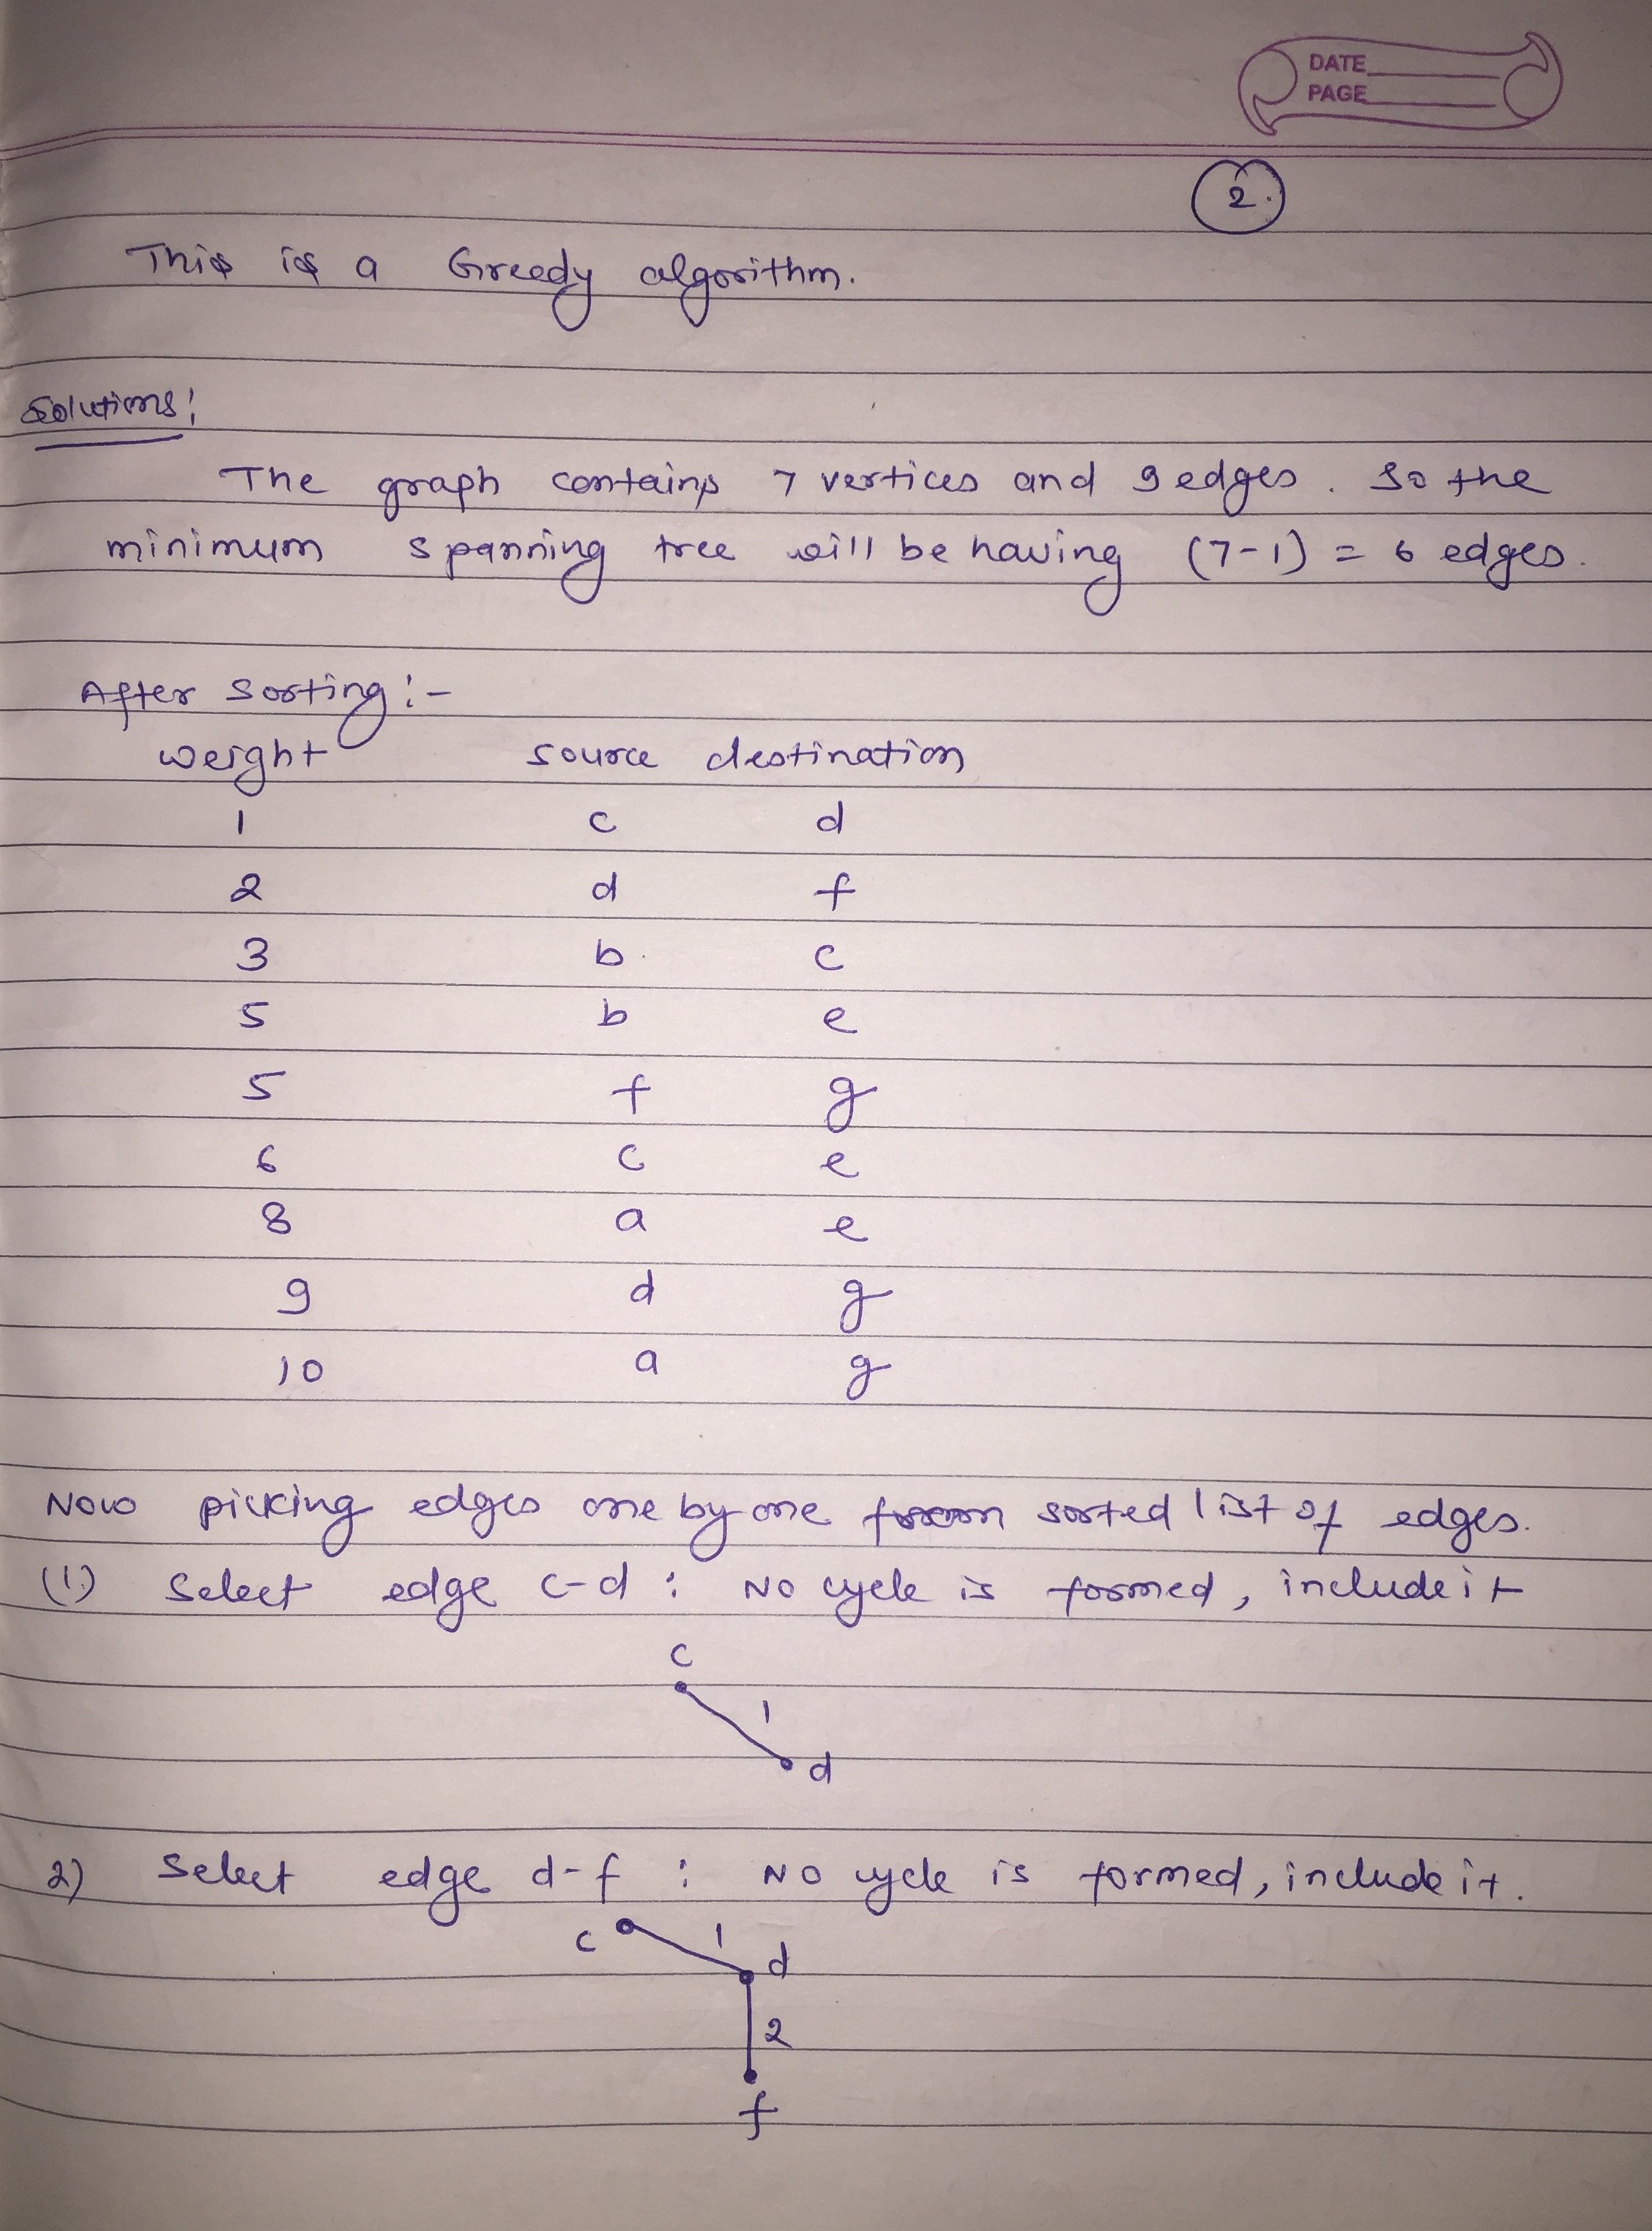 DATE
PAGE
2.
This is a Greedy algorithm.
Solutions:
The graph contains 7 vertices and 9 edges. So the
minimum spanning tree will be having (7-1) = 6 edges.
After sorting:-
weight source destination
1 c d
2 d f
3 b c
5 b e
5 f g
6 c e
8 a e
9 d g
10 a g
Now picking edges one by one from sorted list of edges.
(1) Select edge c-d : No cycle is formed, include it
c
1
d
2) Select edge d-f : No cycle is formed, include it.
c 1 d
2
f